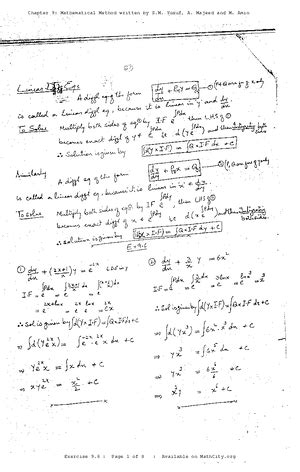 Chapter 9: Mathematical Method written by S.M. Yusuf, A. Majeed and M. Amin
Linear Diff Eqs
A diffl eq of the form dy/dx + Py = Q —① (P & Q are fns of x only
is called a Linear diffl eq, because it is linear in y and dy/dx.
To Solve Multiply both sides of eq① by IF e^∫Pdx then LHS of ①
becomes exact diffl of y e^∫Pdx i.e. d(y e^∫Pdx) and then
∴ Solution is given by (y×IF) = ∫Q×IF dx + C
Similarly
A diffl eq of the form dx/dy + Px = Q
is called a Linear diffl eq, because it is linear in x & dx/dy.
To solve Multiply both sides of eq by IF e^∫Pdy then LHS of
becomes exact diffl of x e^∫Pdy i.e. d(x e^∫Pdy) and then
∴ Solution is given by (x×IF) = ∫Q×IF dy + C
E x 9.6
① dy/dx + (2x+1)/x y = e^-2x
IF = e^∫Pdx = e^∫(2x+1)/x dx = e^∫(2+1/x)dx
= e^2x+lnx = e^2x . e^lnx = e^2x . x
∴ Sol is given by ∫d(y×IF) = ∫Q×IF dx + C
⇒ ∫d(y e^2x x) = ∫e^-2x e^2x x dx + C
⇒ y e^2x x = ∫x dx + C
⇒ x y e^2x = x²/2 + C
② dy/dx + 3/x y = 6x²
IF = e^∫Pdx = e^∫3/x dx = e^3lnx = e^lnx³ = x³
∴ Sol is given by ∫d(y×IF) = ∫Q×IF dx + C
⇒ ∫d(y x³) = ∫6x² . x³ dx + C
⇒ y x³ = ∫6x⁵ dx + C
⇒ y x³ = 6x⁶/6 + C
⇒ x³y = x⁶ + C
Exercise 9.6 : Page 1 of 8 : Available on MathCity.org